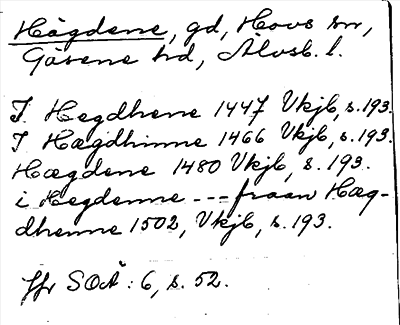 Hägdene, gd, Hovs sn,
Gäsene hd, Älvsb. l.
I. Hegdhene 1447 Vkjb, s. 193.
I Hægdhinne 1466 Vkjb, s. 193.
Hægdene 1480 Vkjb, s. 193.
i Hegdenne --- fraan Hæg-
dhenne 1502, Vkjb, s. 193.
Jfr SOÄ: 6, s. 52.